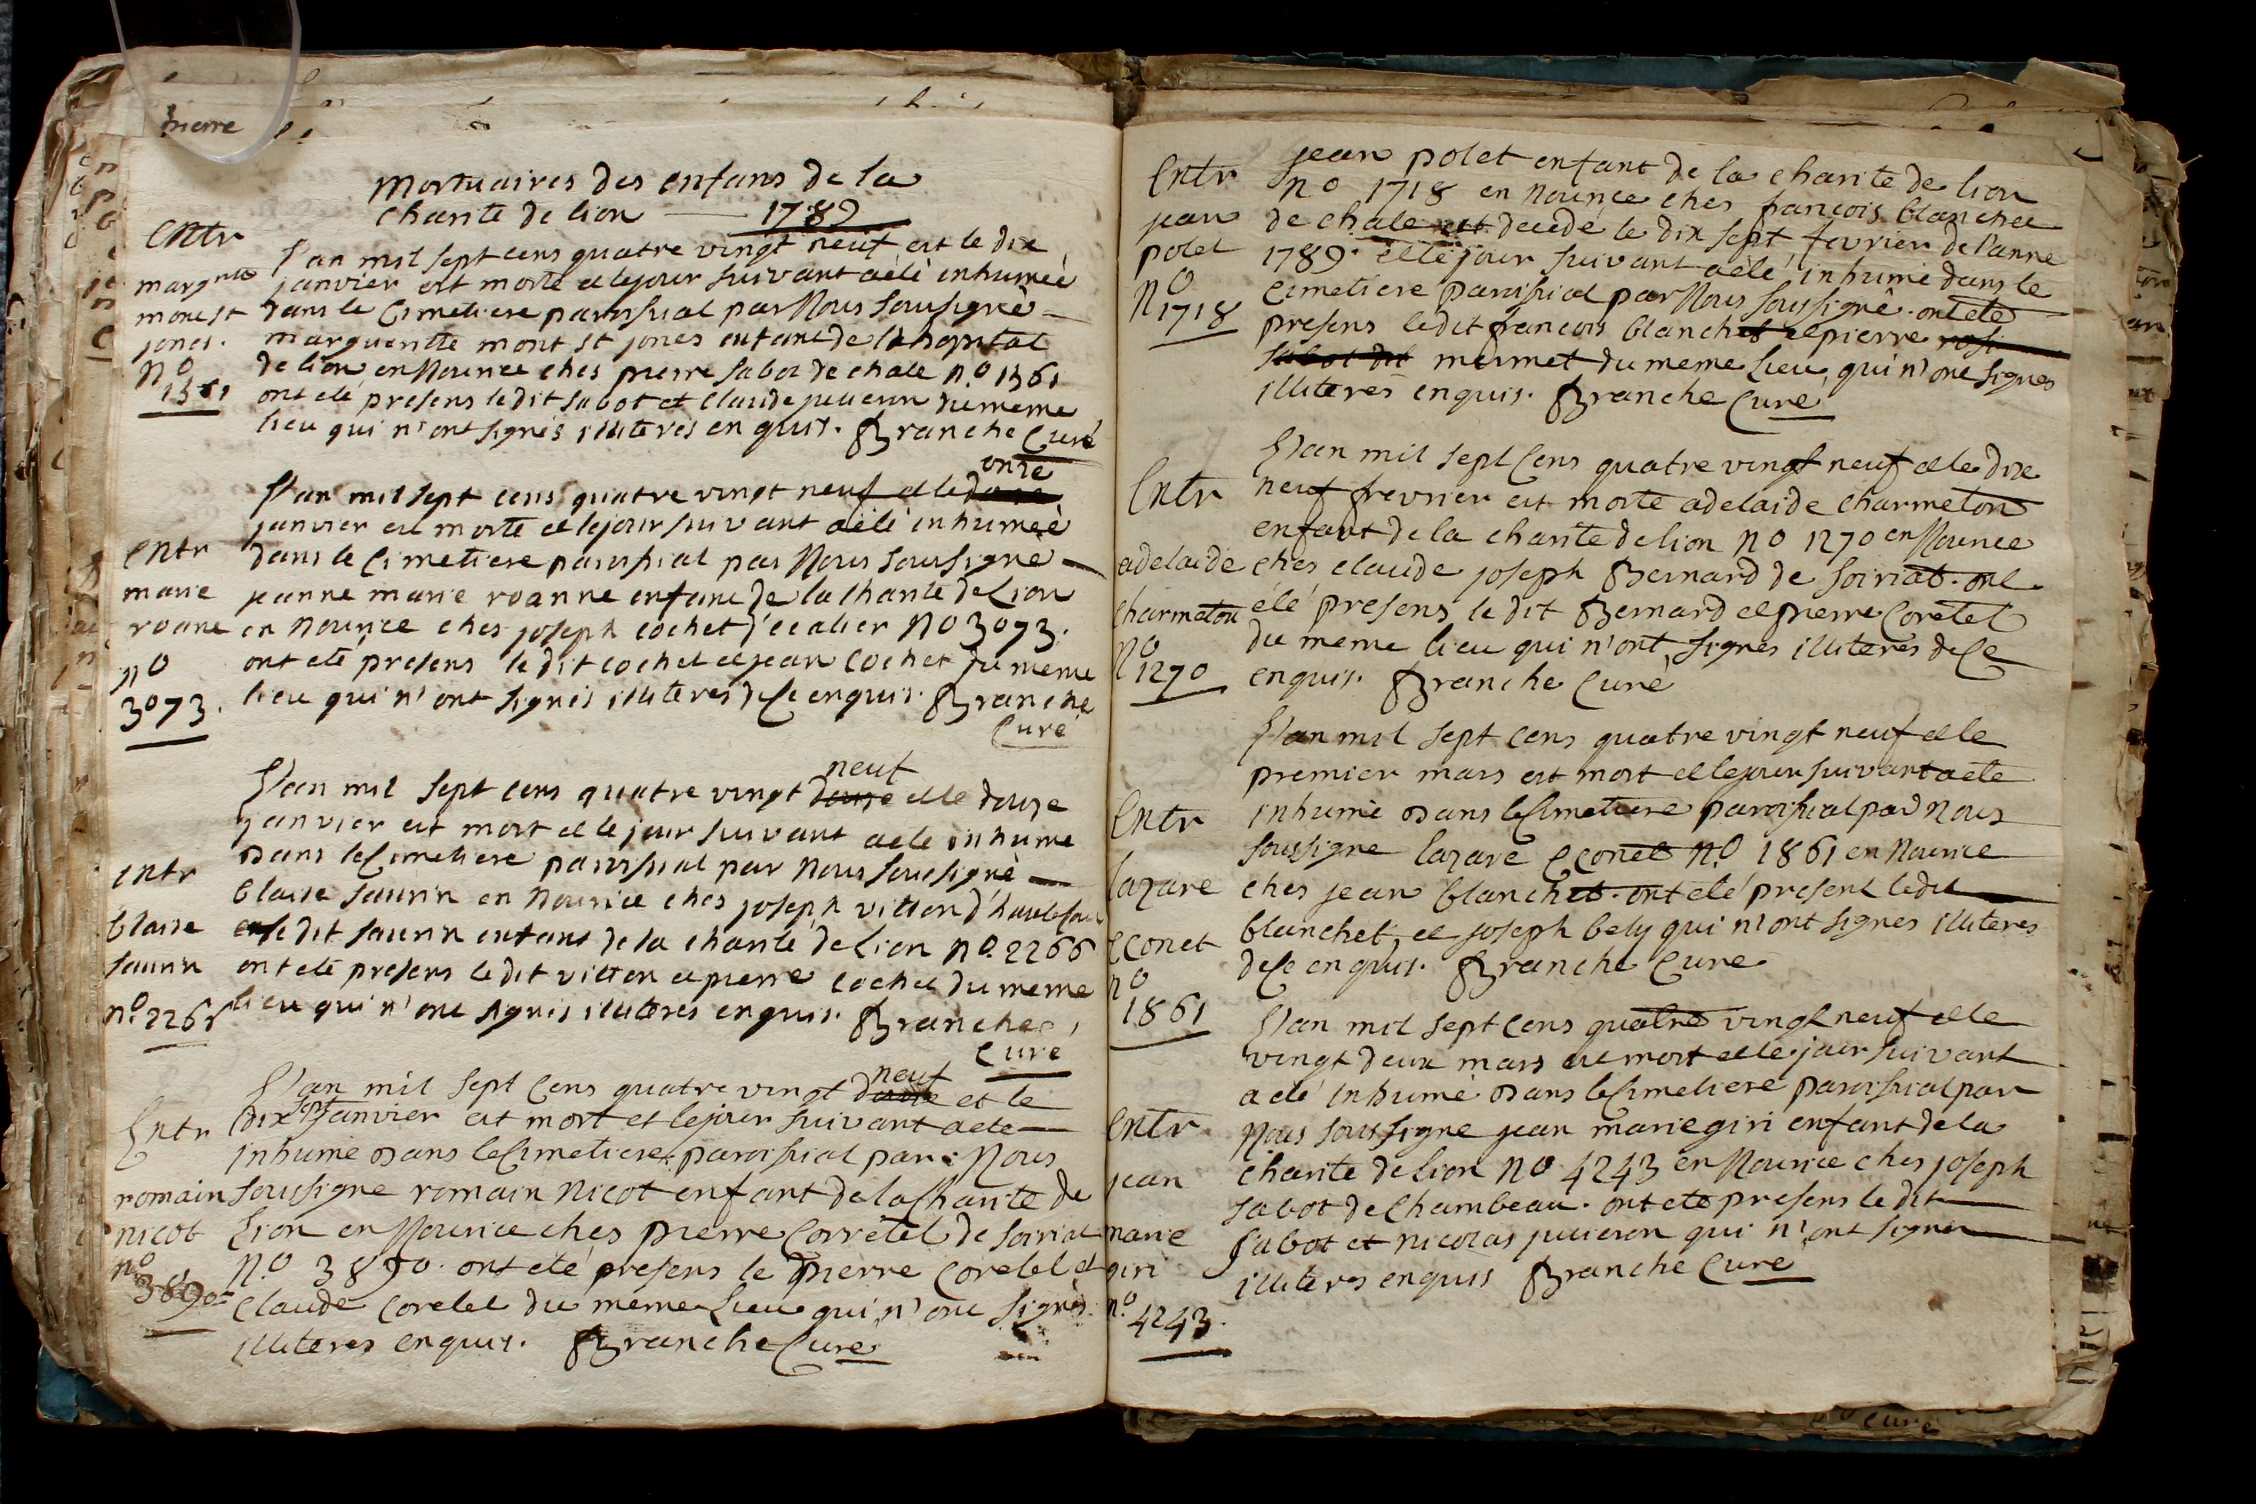 pierre
Mortuaires des enfans de la
charite de lion 1789
Entr
marg^te
mont st
jones.
n^o
1361
l'an mil sept cens quatre vingt neuf est le dix
janvier est morte et le jour suivant a été inhumée
dans le cimetiere paroissial par Nous soussigné
margueritte mont st jones enfant de l'hopital
de lion en Nourice ches pierre sabot de chale n.^o 1361
ont eté presens le dit sabot et Claude du meme
lieu qui n'ont signés illiterés enquis. Branche Curé
Entr
marie
roane
n^o
3073.
onze
L'an mil sept cens quatre vingt neuf et le douze
janvier est morte et le jour suivant a été inhumeé
dans le Cimetiere paroissial par Nous soussigné
jeanne marie roanne enfant de la Charité de Lion
en Nourice ches joseph cochet d'ecalier No 3073.
ont eté presens le dit cochet et jean cochet du meme
lieu qui n'ont signés illiterés de ce enquis. Branche
Curé
Entr
blaise
saunin
n^o. 2266
neuf
L'an mil sept cens quatre vingt douze et le douze
janvier est mort et le jour suivant a été inhume
dans le Cimetiere paroissial par Nous soussigné
blaise saunin en Nourice ches joseph vitton
le dit saunin enfant de la charité de Lion No. 2266
ont eté presens le dit vitton et pierre cochet du meme
lieu qui n'ont signés illiterés enquis. Branche
Curé
Entr
romain
nicot
n^o
3890
neuf
L'an mil sept Cens quatre vingt douze et le
dix sept janvier est mort et le jour suivant a eté
inhumé dans le Cimetiere paroissial par Nous
soussigné romain Nicot enfant de la Charité de
Lion en Nourice ches pierre Corretel de soiriat
N.^o 3890. ont eté presens le pierre Coretel et
Claude Coretel du meme Lieu qui n'ont signés
illiterés enquis. Branche Curé
Entr
jean
polet
n^o
1718
jean polet enfant de la charité de lion
no 1718 en nourice ches francois blanchet
de chale est decedé le dix sept fevrier de l'anne
1789. et le jour suivant a été inhumé dans le
Cimetiere paroissial par Nous soussigné. ont eté
presens ledit francois blanchet et pierre
sabot dit mermet du meme Lieu qui n'ont signés
illiterés enquis. Branche Curé
Entr
adelaide
Charmeton
n^o
1270
L'an mil sept Cens quatre vingt neuf et le dix
neuf frevrier est morte adelaide Charmeton
enfant de la charité de lion no 1270 en Nourice
ches claude joseph Bernard de soiriat. ont
été presens le dit Bernard et pierre Coretel
du meme lieu qui n'ont signés illiterés de ce
enquis. Branche Curé
Entr
lazare
econet
n^o
1861
L'an mil sept cens quatre vingt neuf et le
premier mars est mort et le jour suivant a eté
inhumé dans le Cimetiere paroissial par Nous
soussigné lazare econet N.^o 1861 en Nourice
ches jean blanchet. ont eté present ledit
blanchet et joseph bely qui n'ont signés illiterés
de ce enquis. Branche Curé
Entr
jean
marie
giri
n.^o
4243.
L'an mil sept Cens quatre vingt neuf et le
vingt deux mars est mort et le jour suivant
a été inhumé dans le Cimetiere paroissial par
Nous soussigné jean marie giri enfant de la
charité de Lion No 4243 en Nourice ches joseph
sabot de Chambeau. ont eté presens le dit
sabot et nicolas qui n'ont signés
illiterés enquis Branche Curé
curé